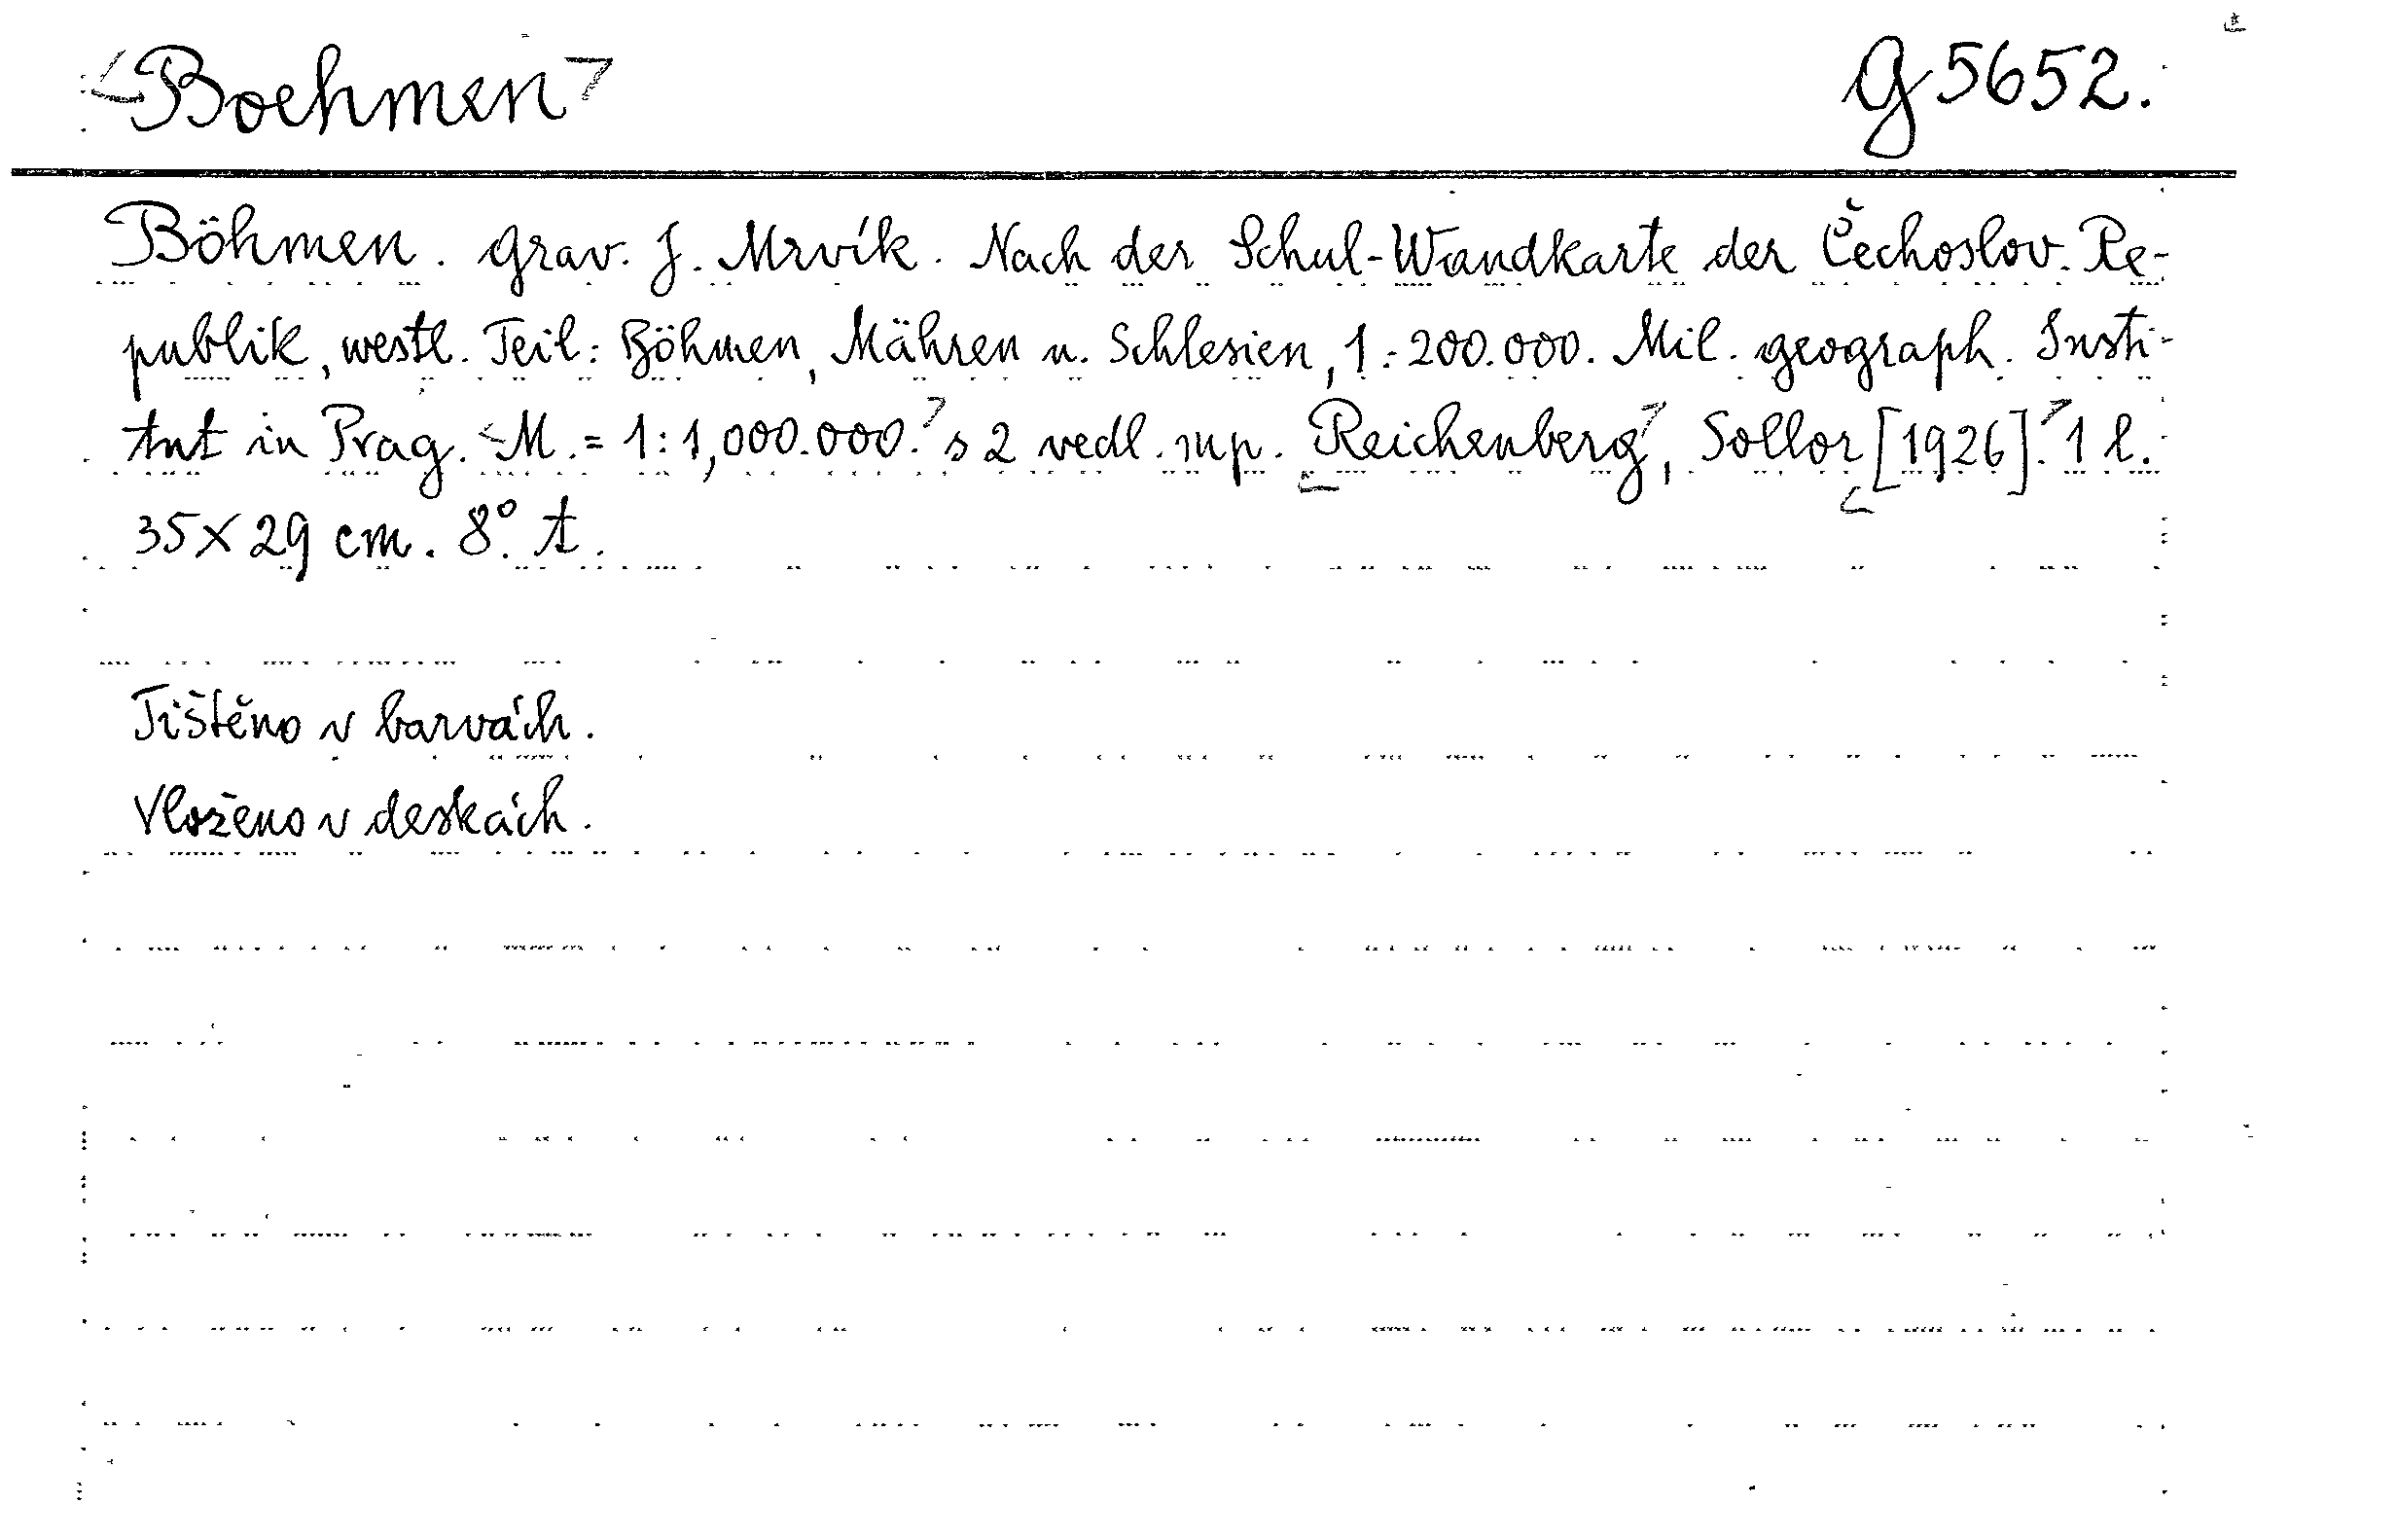 <Boehmen> g 5652.
Böhmen. Grav. J. Mrvík. Nach der Schul-Wandkarte der Čechoslov. Re-
publik, westl. Teil: Böhmen, Mähren u. Schlesien, 1:200.000. Mil. geograph. Insti-
tut in Prag. <M. = 1:1,000.000.> s 2 vedl. mp. <Reichenberg>, Sollor <[1926].> 1 l.
35 x 29 cm. 8°. t.
Tištěno v barvách.
Vloženo v deskách.